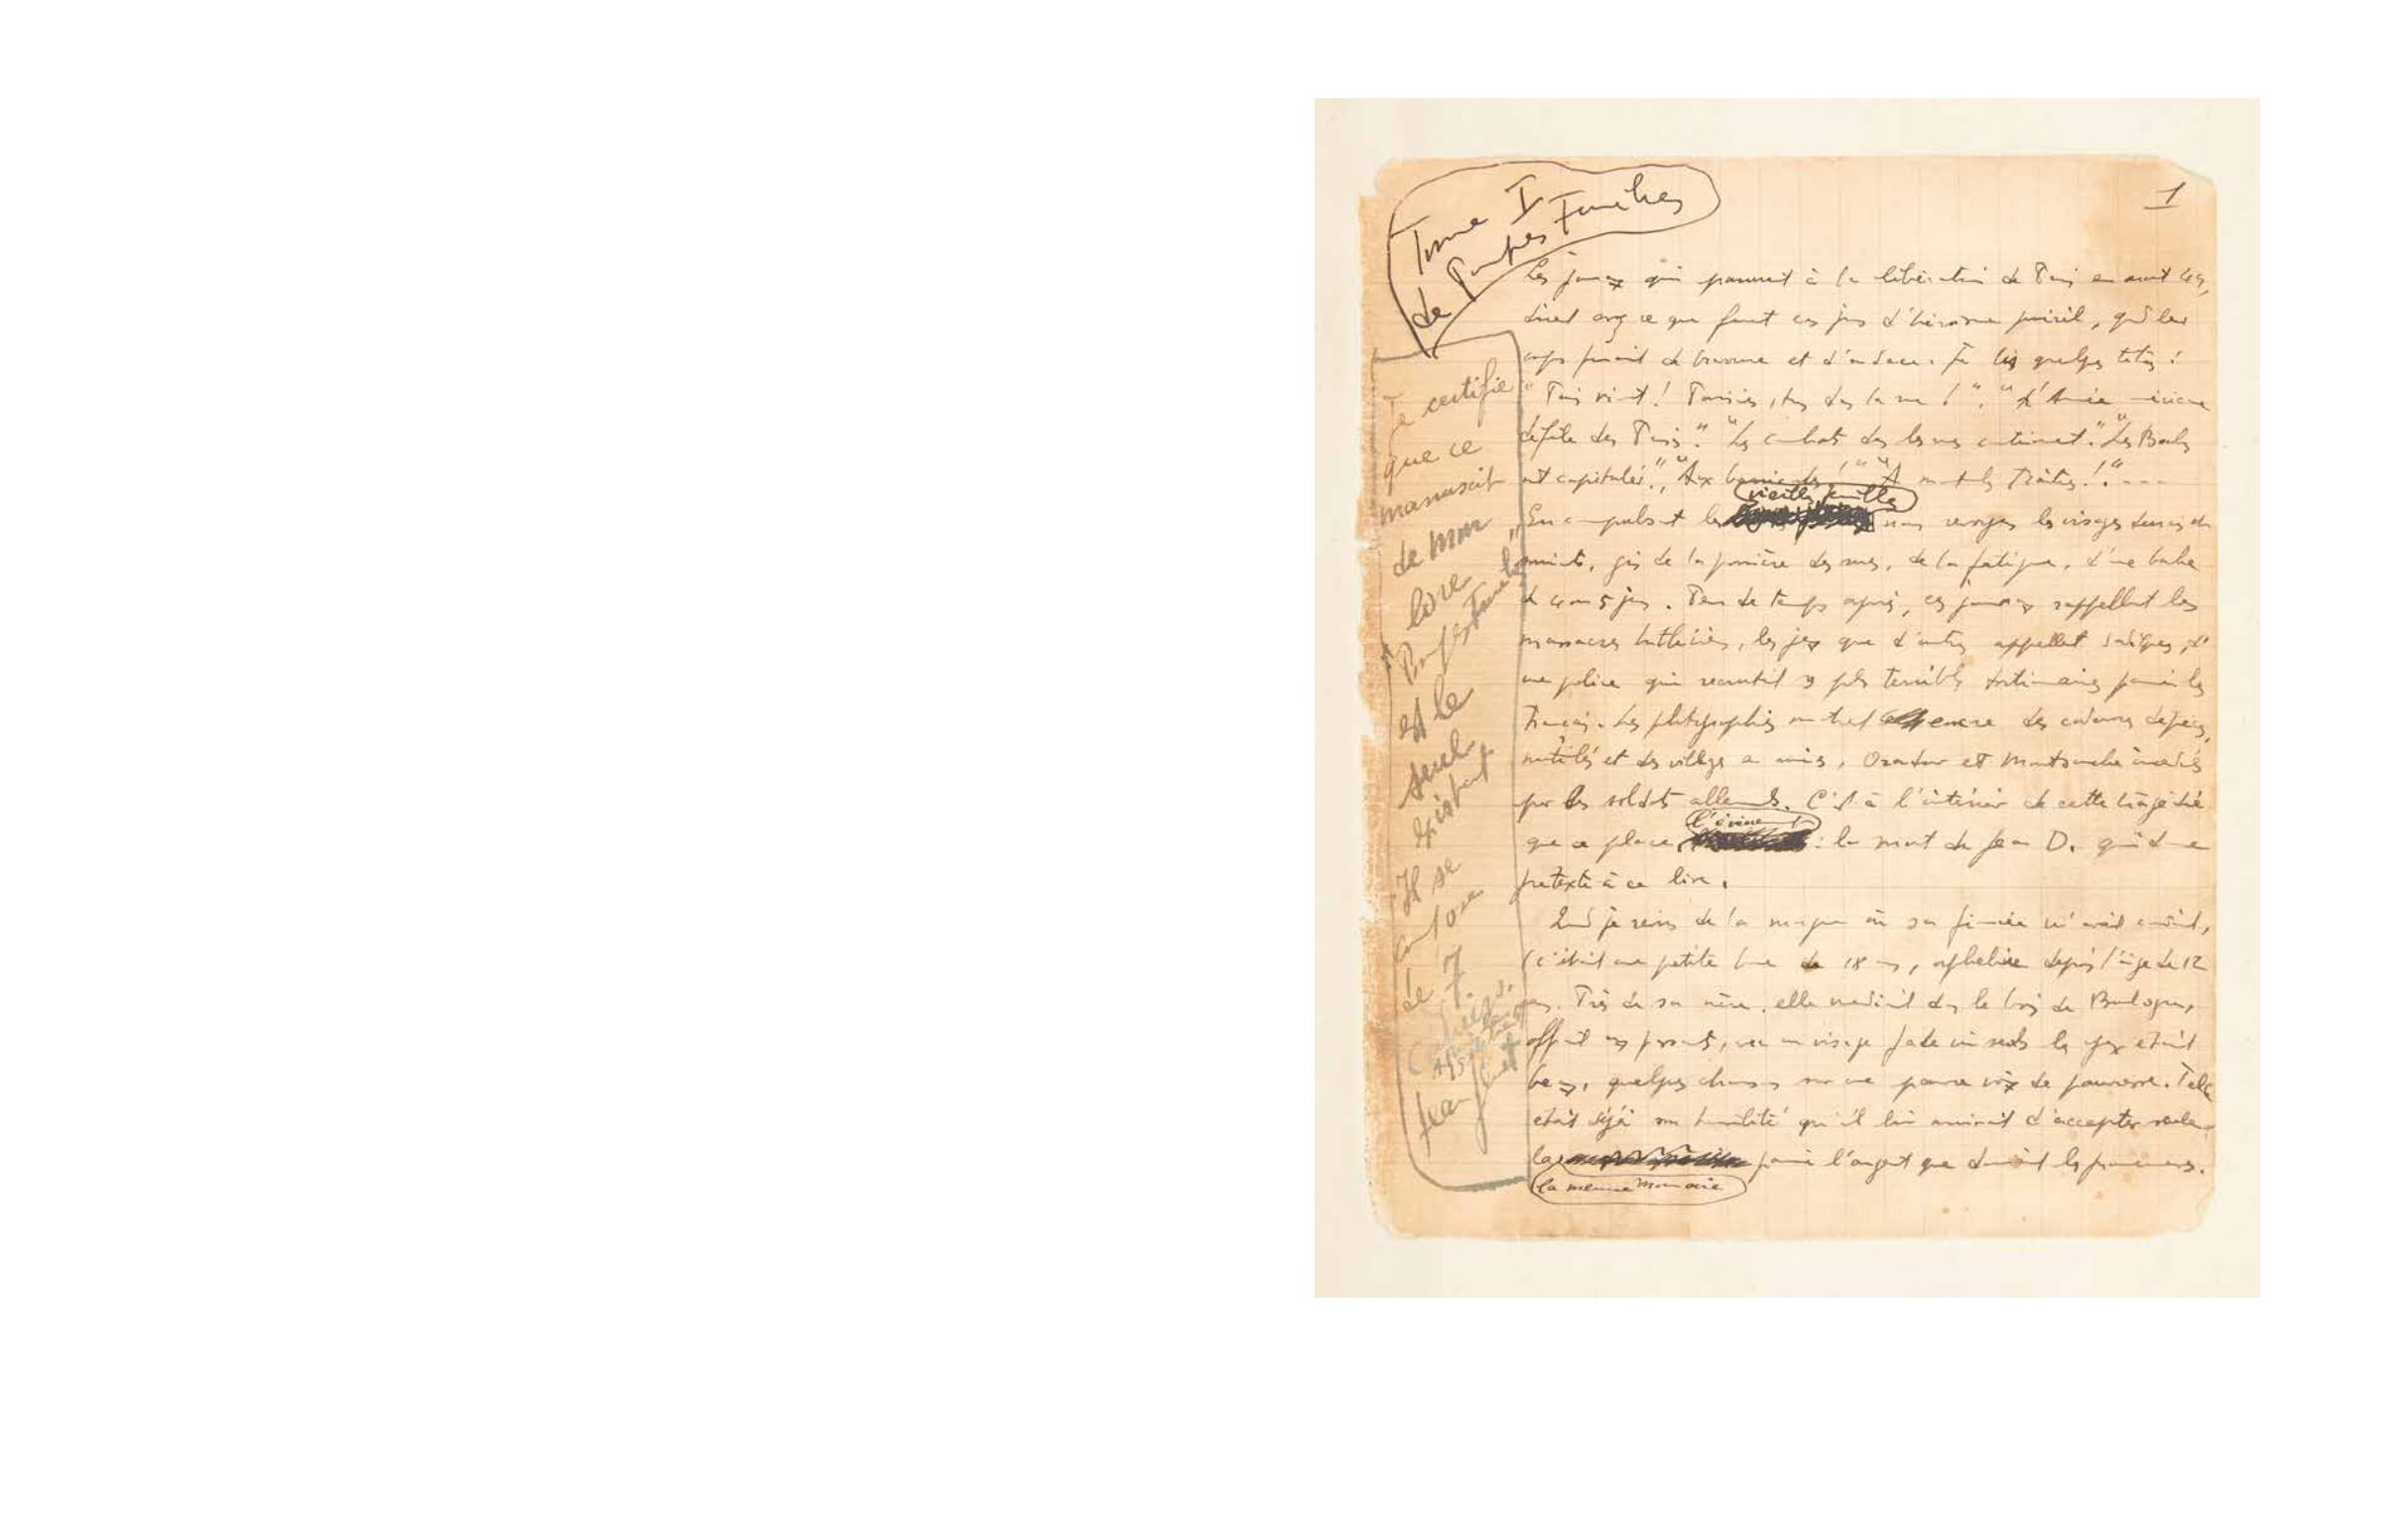 Tome I
de Pompes Funèbres
1
Je certifie
que ce
manuscrit
de mon
livre
"Pompes Funèbres"
est le
seul
existant
Il se
compose
de 7
Cahiers.
Jean Genet
Les journaux qui parurent à la libération de Paris en août 44,
dirent assez ce que furent ces jours d'héroïsme puéril, quand le
corps fumait de bravoure et d'audace. Je lis quelques titres :
"Paris vit !" "Parisiens, tous dans la rue !". "L'Armée américaine
défile dans Paris". "Les combats dans les rues continuent". "Les Boches
ont capitulé". "Aux barricades !" "A mort les Traîtres !" ...
En compulsant les vieilles feuilles nous revoyons les visages durcis et
souriants, gris de la poussière des rues, de la fatigue, d'une barbe
de 4 ou 5 jours. Peu de temps après, ces journaux rappellent les
massacres hitlériens, les jeux que d'autres appellent sadiques, d'
une police qui recrutait ses plus terribles tortionnaires parmi les
Français. Les photographies montrent encore des cadavres dépecés,
mutilés et des villages en ruines, Oradour et Montsauche incendiés
par les soldats allemands. C'est à l'intérieur de cette tragédie
que se place l'événement : la mort de Jean D. qui donne
prétexte à ce livre.
Quand je revins de la morgue où sa fiancée m'avait conduit,
(c'était une petite bonne de 18 ans, orpheline depuis l'âge de 12
ans. Près de sa mère, elle mendiait dans le bois de Boulogne,
offrant aux passants, avec un visage fade où seuls les yeux étaient
beaux, quelques chansons sur une pauvre voix de pauvresse. Telle
était déjà son humilité qu'il lui arrivait d'accepter seulement
la menue monnaie parmi l'argent que donnaient les promeneurs.